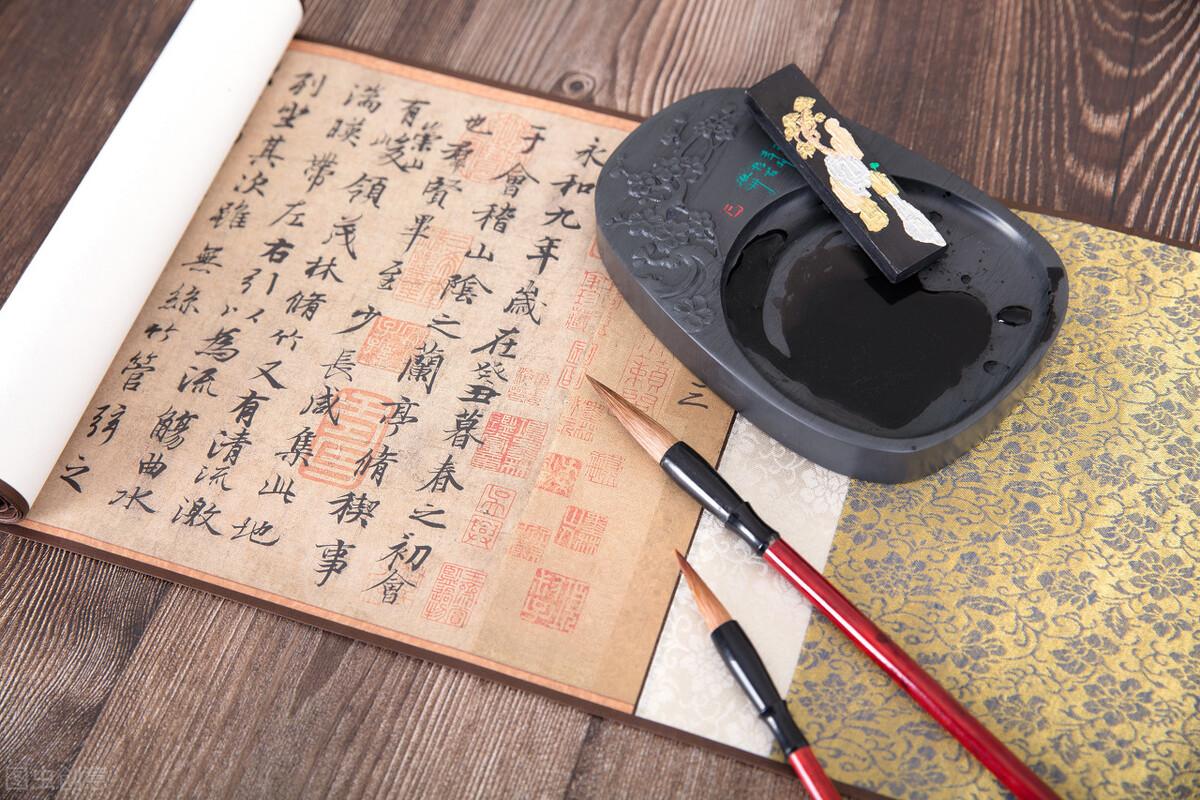 永和九年歲在癸丑暮春之初會
于會稽山陰之蘭亭脩稧事
也羣賢畢至少長咸集此地
有崇山峻領茂林脩竹又有清流激
湍暎帶左右引以為流觴曲水
列坐其次雖無絲竹管弦之
三
图虫创意